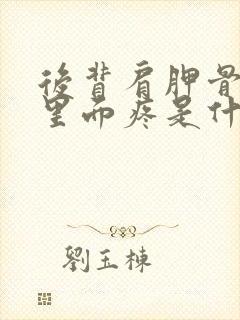 後背肩胛骨
里面疼是什
劉玉棟